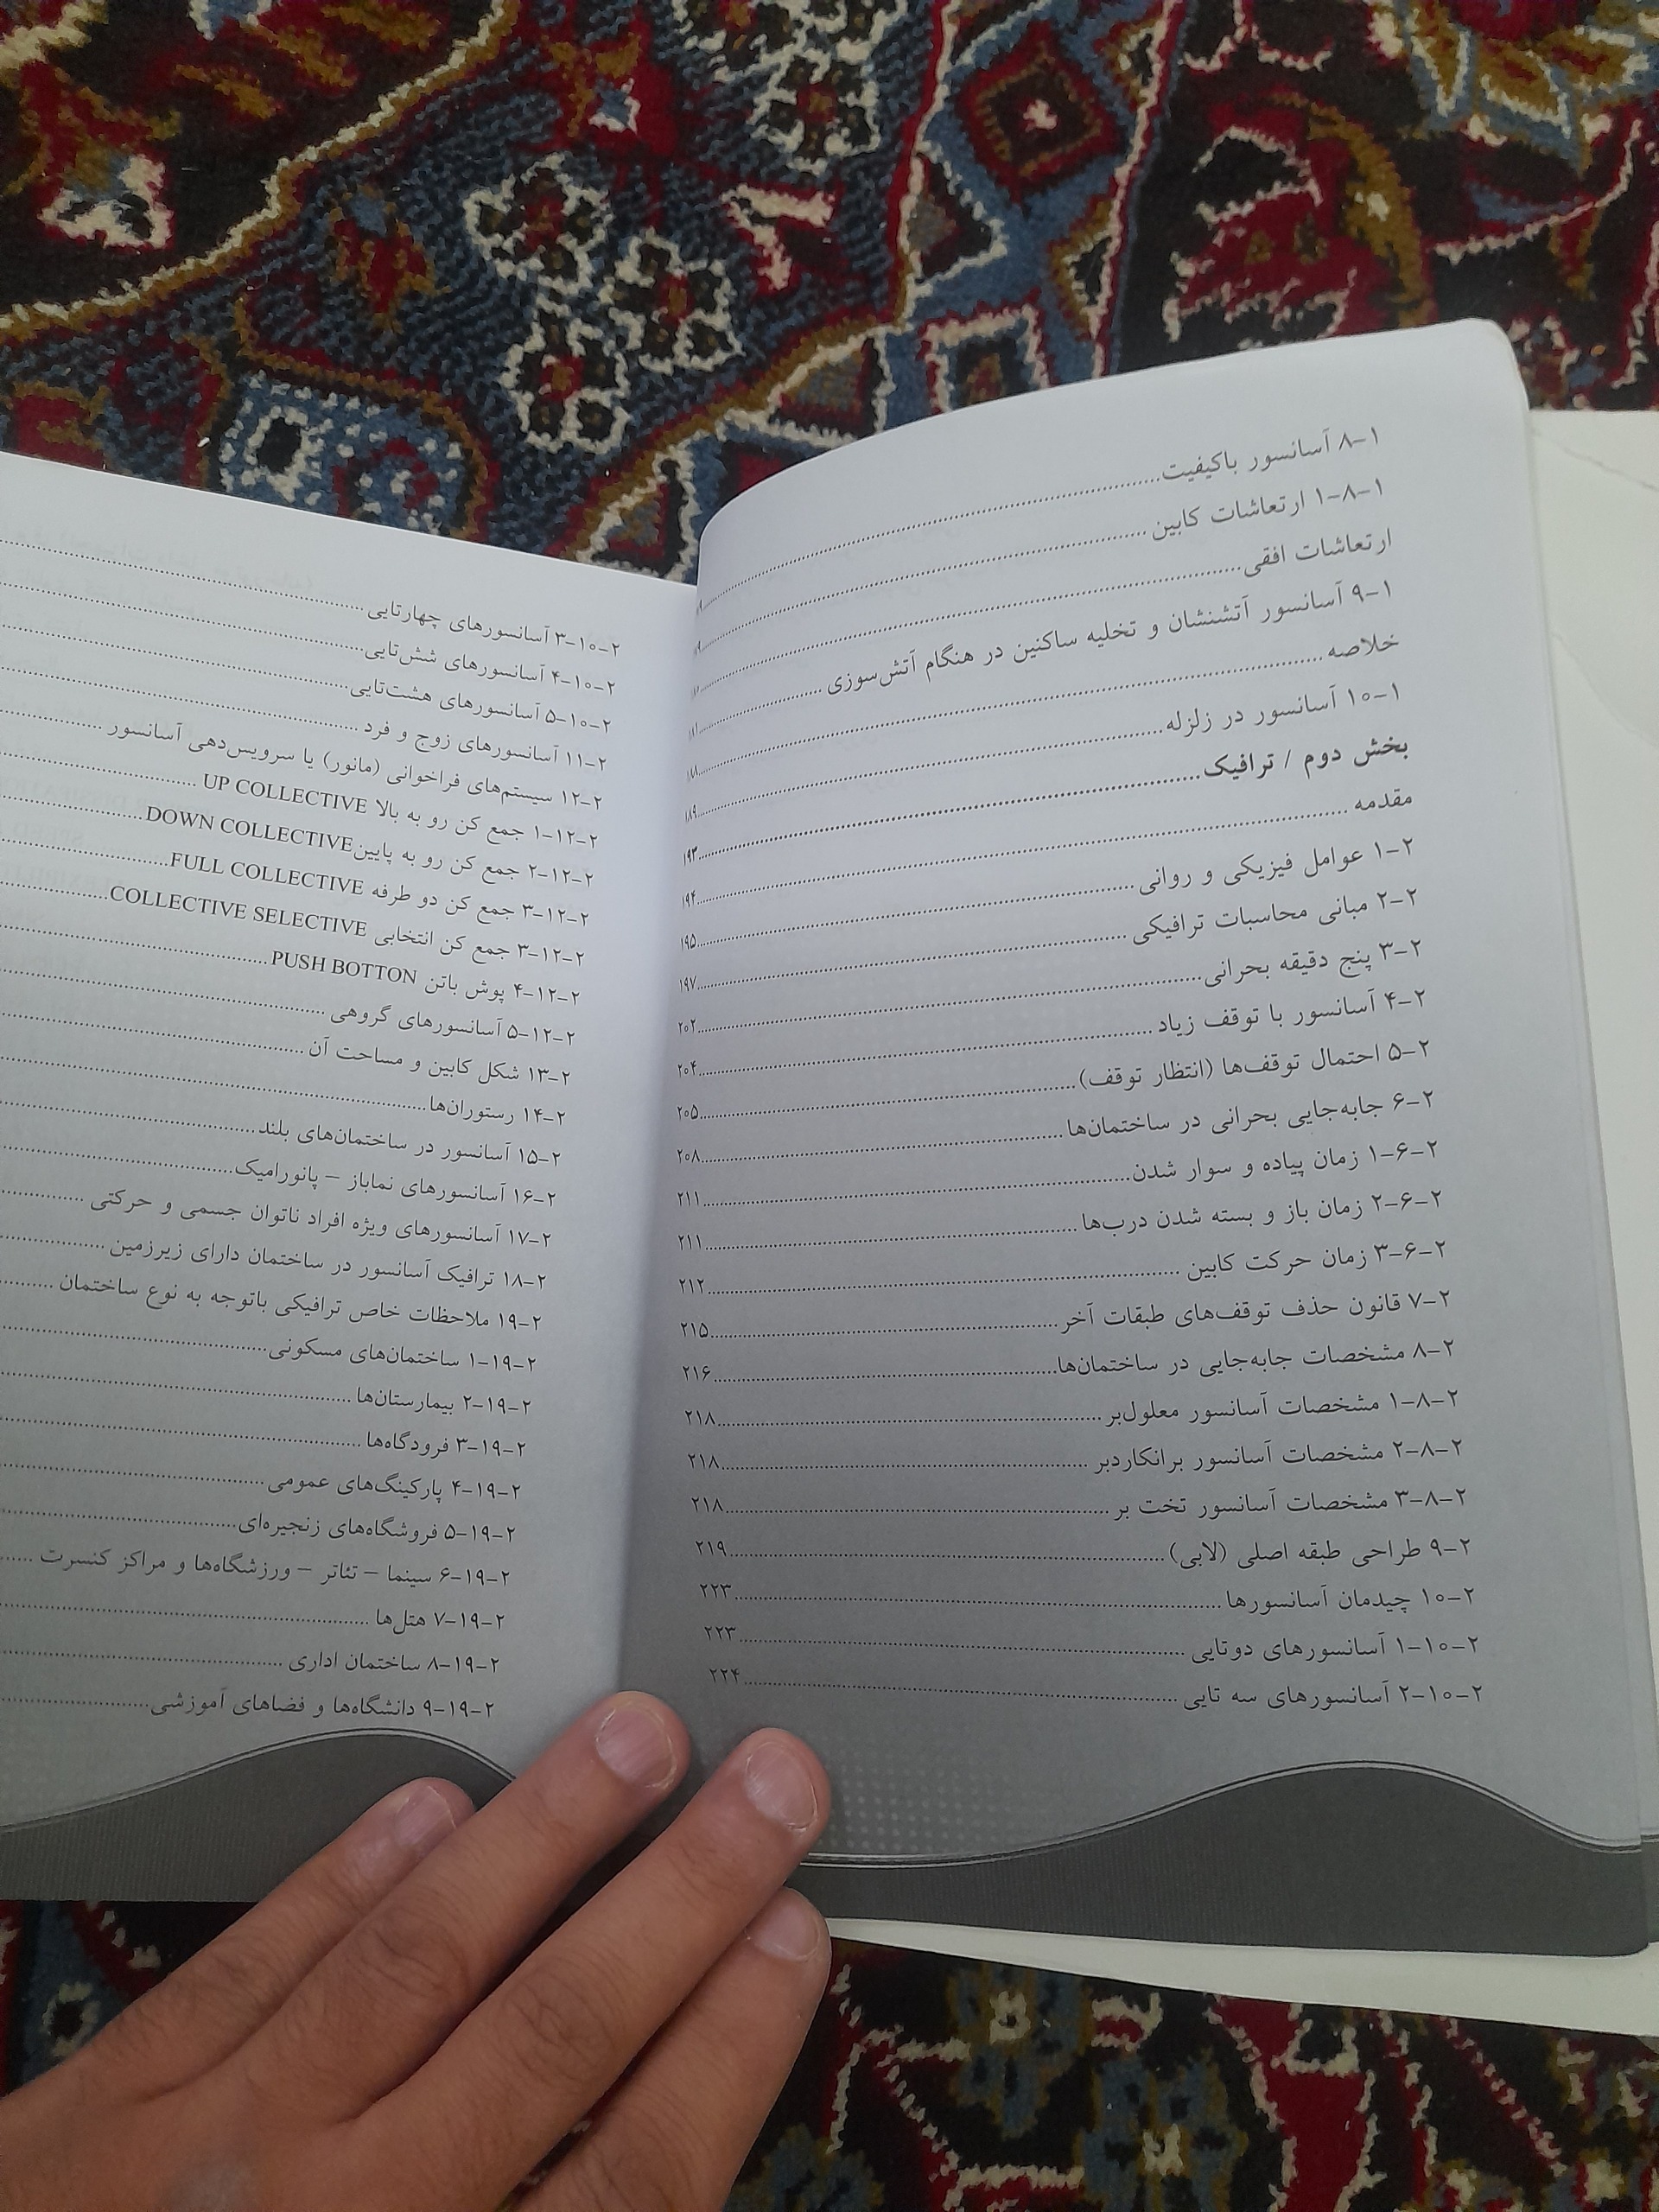 ۸-۱ آسانسور باکیفیت
۱-۸-۱ ارتعاشات کابین
ارتعاشات افقی
۹-۱ آسانسور آتشنشان و تخلیه ساکنین در هنگام آتش‌سوزی
خلاصه
۱۰-۱ آسانسور در زلزله ۱۸۹
بخش دوم / ترافیک ۱۹۳
مقدمه ۱۹۴
۱-۲ عوامل فیزیکی و روانی ۱۹۵
۲-۲ مبانی محاسبات ترافیکی ۱۹۷
۳-۲ پنج دقیقه بحرانی ۲۰۲
۴-۲ آسانسور با توقف زیاد ۲۰۴
۵-۲ احتمال توقف‌ها (انتظار توقف) ۲۰۵
۶-۲ جابه‌جایی بحرانی در ساختمان‌ها ۲۰۸
۱-۶-۲ زمان پیاده و سوار شدن ۲۱۱
۲-۶-۲ زمان باز و بسته شدن درب‌ها ۲۱۱
۳-۶-۲ زمان حرکت کابین ۲۱۲
۷-۲ قانون حذف توقف‌های طبقات آخر ۲۱۵
۸-۲ مشخصات جابه‌جایی در ساختمان‌ها ۲۱۶
۱-۸-۲ مشخصات آسانسور معلول‌بر ۲۱۸
۲-۸-۲ مشخصات آسانسور برانکاردبر ۲۱۸
۳-۸-۲ مشخصات آسانسور تخت بر ۲۱۸
۹-۲ طراحی طبقه اصلی (لابی) ۲۱۹
۱۰-۲ چیدمان آسانسورها ۲۲۳
۱-۱۰-۲ آسانسورهای دوتایی ۲۲۳
۲-۱۰-۲ آسانسورهای سه تایی ۲۲۴
۳-۱۰-۲ آسانسورهای چهارتایی
۴-۱۰-۲ آسانسورهای شش‌تایی
۵-۱۰-۲ آسانسورهای هشت‌تایی
۱۱-۲ آسانسورهای زوج و فرد
۱۲-۲ سیستم‌های فراخوانی (مانور) یا سرویس‌دهی آسانسور
۱-۱۲-۲ جمع کن رو به بالا UP COLLECTIVE
۲-۱۲-۲ جمع کن رو به پایین DOWN COLLECTIVE
۳-۱۲-۲ جمع کن دو طرفه FULL COLLECTIVE
۳-۱۲-۲ جمع کن انتخابی COLLECTIVE SELECTIVE
۴-۱۲-۲ پوش باتن PUSH BOTTON
۵-۱۲-۲ آسانسورهای گروهی
۱۳-۲ شکل کابین و مساحت آن
۱۴-۲ رستوران‌ها
۱۵-۲ آسانسور در ساختمان‌های بلند
۱۶-۲ آسانسورهای نماباز – پانورامیک
۱۷-۲ آسانسورهای ویژه افراد ناتوان جسمی و حرکتی
۱۸-۲ ترافیک آسانسور در ساختمان دارای زیرزمین
۱۹-۲ ملاحظات خاص ترافیکی باتوجه به نوع ساختمان
۱-۱۹-۲ ساختمان‌های مسکونی
۲-۱۹-۲ بیمارستان‌ها
۳-۱۹-۲ فرودگاه‌ها
۴-۱۹-۲ پارکینگ‌های عمومی
۵-۱۹-۲ فروشگاه‌های زنجیره‌ای
۶-۱۹-۲ سینما – تئاتر – ورزشگاه‌ها و مراکز کنسرت
۷-۱۹-۲ هتل‌ها
۸-۱۹-۲ ساختمان اداری
۹-۱۹-۲ دانشگاه‌ها و فضاهای آموزشی